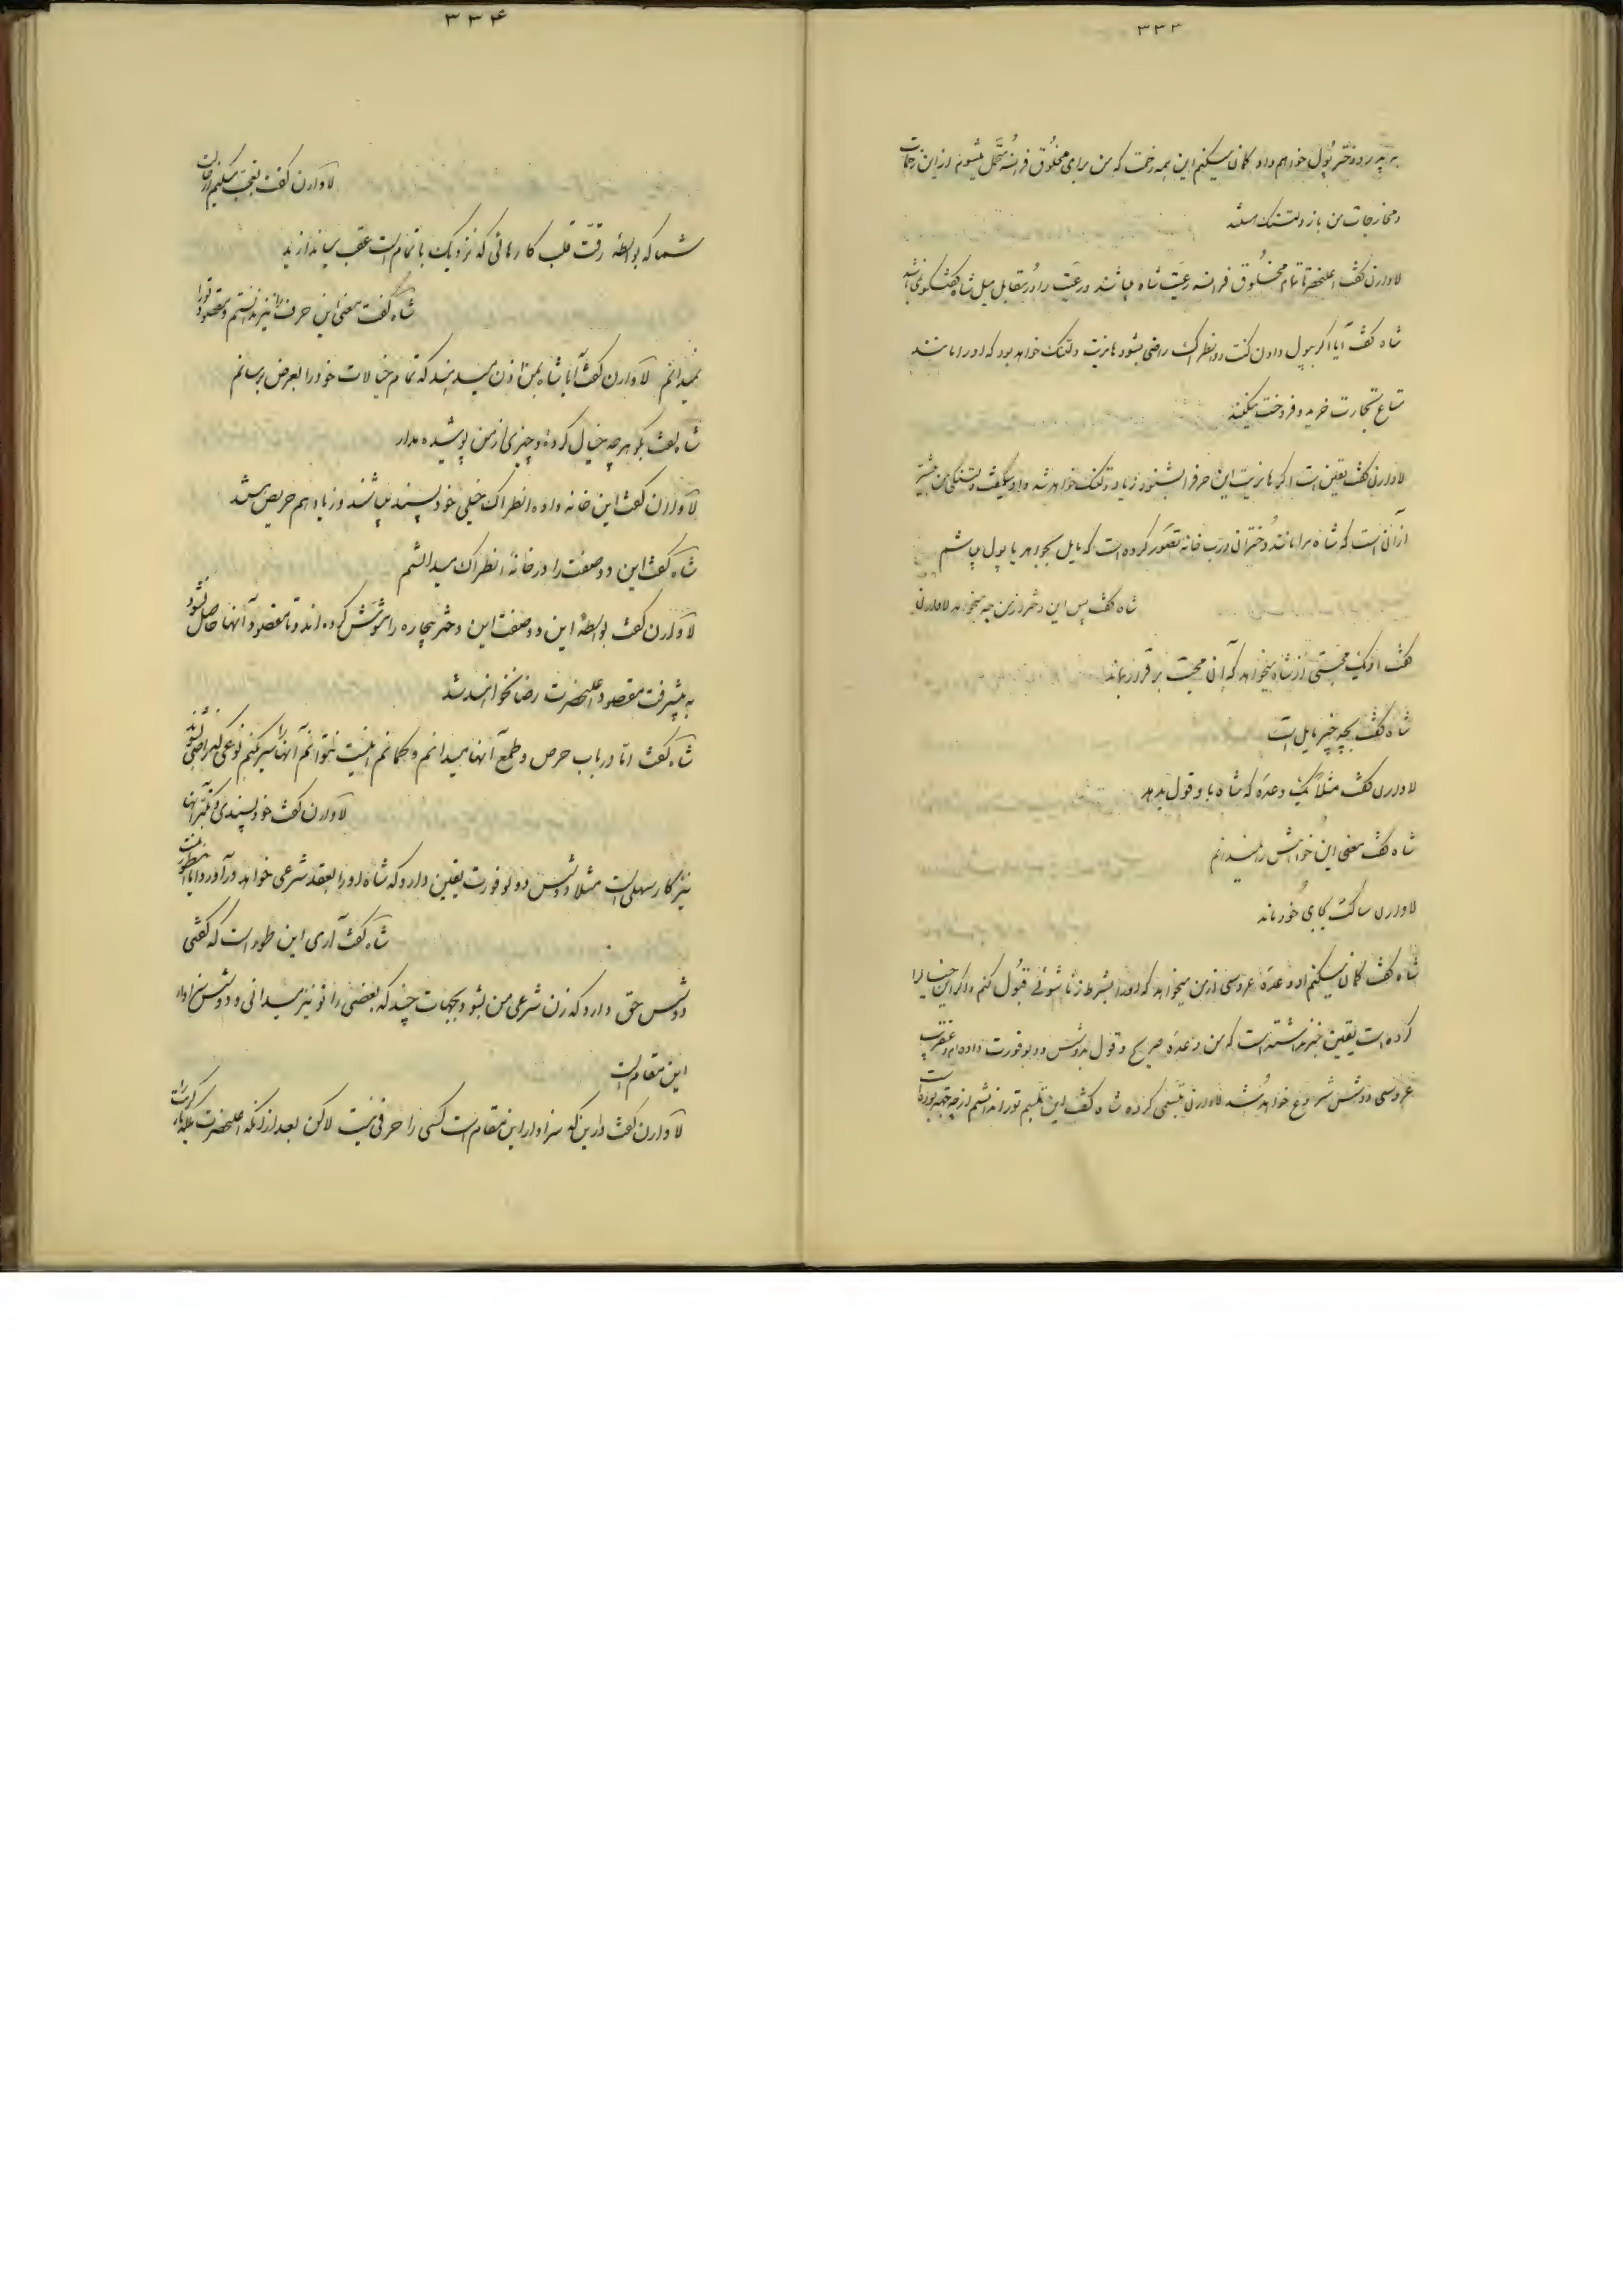 ۳۳۳
به پدر و دختر پول خواهم داد گمان میکنم این همه زحمت که من برای مخلوق فرانسه متحمل میشوم از این زحمات
و مخارجات من باز دلتنک هستند
لاوارن گفت اعلیحضرتا تمام مخلوق فرانسه رعیت شاه میباشند و رعیت را در مقابل میل شاه گفتگوئی نباشد
شاه گفت آیا اگر بپول دادن کنت دو انطراک راضی بشود هانریت دلتنک خواهد بود که او را مانند
متاع تجارت خرید و فروخت میکنند
لاوارن گفت یقین است اگر هانریت این حرف را بشنود زیاد دلتنک خواهد شد و او میگفت دلتنکی من بیشتر
از آن است که شاه مرا مانند دختران درب خانه تصور کرده است که مایل بجواهر یا پول باشم
شاه گفت پس این دختر از من چه میخواهد لاوارن
گفت او یک محبتی از شاه میخواهد که آن محبت برقرار بماند
شاه گفت بچه چیز مایل است
لاوارن گفت مثلاً یک وعدهٔ که شاه باو قول بدهد
شاه گفت معنی این خواهش را نمیدانم
لاوارن ساکت بجای خود ماند
شاه گفت گمان میکنم او وعدهٔ عروسی از من میخواهد که او را بشرط زناشوئی قبول کنم و اگر این خیال را
کرده است یقین خبر نداشته است که من وعدهٔ صریح و قول بدوشس دو بوفورت داده‌ام و عنقریب
عروسی دوشس شروع خواهد شد لاوارن تبسمی کرده شاه گفت این تبسم تو را ندانستم از چه جهة بوده است
۳۳۴
لاوارن گفت تعجب میکنم از حالت
شما که بواسطهٔ رقت قلب کارهائی که نزدیک باتمام است عقب میاندازید
شاه گفت معنی این حرف را نیز ندانستم و مقصود تو را
نمیدانم لاوارن گفت آیا شاه بمن اذن میدهند که تمام خیالات خود را بعرض برسانم
شاه گفت بگو هر چه خیال کردهٔ و چیزی از من پوشیده مدار
لاوارن گفت این خانه‌واده انطراک خیلی خودپسند میباشند و زیاد هم حریص هستند
شاه گفت این دو صفت را در خانهٔ انطراک میدانستم
لاوارن گفت بواسطهٔ این دو صفت این دختر بیچاره را مشوش کرده‌اند و تا مقصود آنها حاصل نشود
به پیشرفت مقصود اعلیحضرت رضا نخواهند شد
شاه گفت امّا در باب حرص و طمع آنها میدانم و گمانم این است نتوانم آنها را سیر کنم نوعی که راضی نشوند
لاوارن گفت خودپسندی و تکبر آنها
نیز کار سهلی است مثلا دوشس دو بوفورت یقین دارد که شاه او را بعقد شرعی خواهد درآورد و آیا اینطور نیست
شاه گفت آری این طور است که گفتی
دوشس حق دارد که زن شرعی من بشود بجهات چند که بعضی را تو نیز میدانی و دوشس سزاوار
این مقام است
لاوارن گفت در این که سزاوار این مقام است کسی را حرفی نیست لاکن بعد از آنکه اعلیحضرت